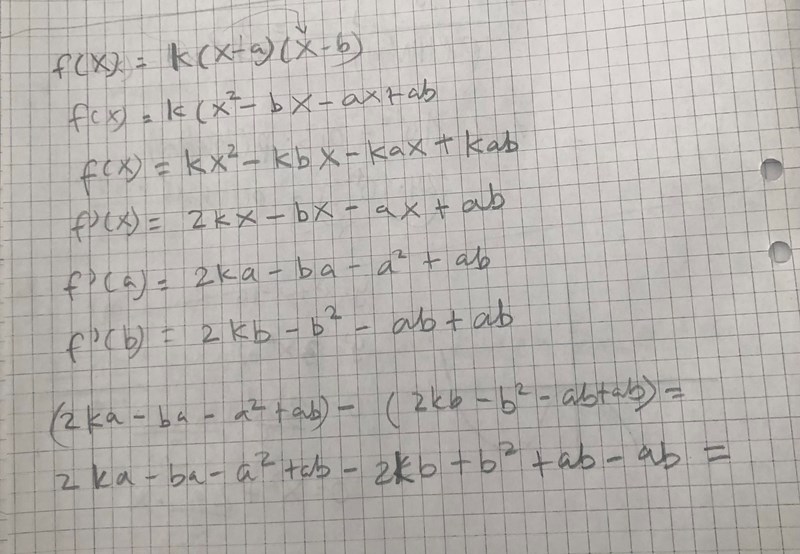 f(x) = k(x-a)(x-b)
f(x) = k(x² - bx - ax + ab
f(x) = kx² - kbx - kax + kab
f'(x) = 2kx - bx - ax + ab
f'(a) = 2ka - ba - a² + ab
f'(b) = 2kb - b² - ab + ab
(2ka - ba - a² + ab) - (2kb - b² - ab + ab) =
2ka - ba - a² + ab - 2kb + b² + ab - ab =